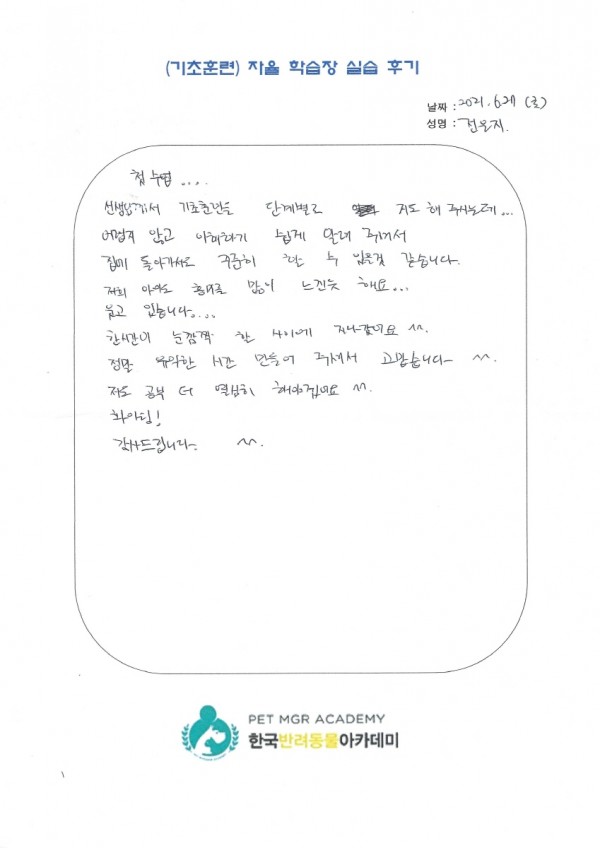 (기초훈련) 자율 학습장 실습 후기
날짜 : 2021. 6.29 (화)
성명 : 전은지.
첫 수업 ....
선생님께서 기초훈련을 단계별로 지도 해 주시는데...
어렵지 않고 이해하기 쉽게 알려 주셔서
집에 돌아가서도 꾸준히 할 수 있을것 같습니다.
저희 아이도 흥미를 많이 느낀듯 해요...
웃고 있습니다....
한시간이 눈깜짝 한 사이에 지나갔네요 ^^.
정말 유익한 시간 만들어 주셔서 고맙습니다~ ^^.
저도 공부 더 열심히 해야겠네요 ^^.
화이팅!
감사드립니다~ ^^.
PET MGR ACADEMY
한국반려동물아카데미